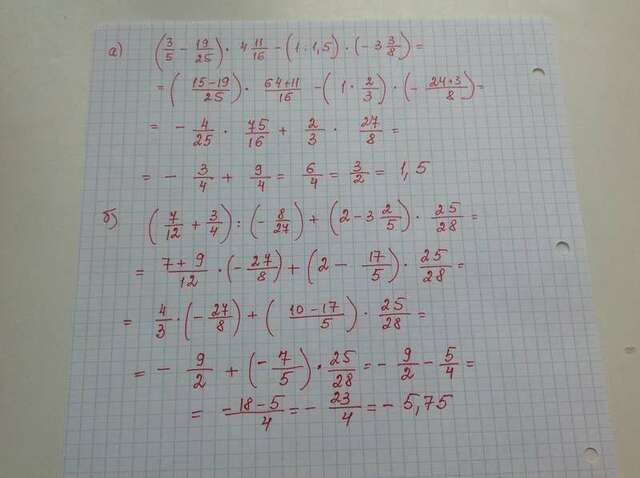 а) (3/5 - 19/25) · 4 11/16 - (1 : 1,5) · (- 3 3/8) =
= (15-19/25) · 64+11/16 - (1 · 2/3) · (- 24+3/8) =
= - 4/25 · 75/16 + 2/3 · 27/8 =
= - 3/4 + 9/4 = 6/4 = 3/2 = 1,5
б) (7/12 + 3/4) : (- 8/27) + (2 - 3 2/5) · 25/28 =
= 7+9/12 · (- 27/8) + (2 - 17/5) · 25/28 =
= 4/3 · (- 27/8) + (10-17/5) · 25/28 =
= - 9/2 + (- 7/5) · 25/28 = - 9/2 - 5/4 =
= -18-5/4 = - 23/4 = - 5,75